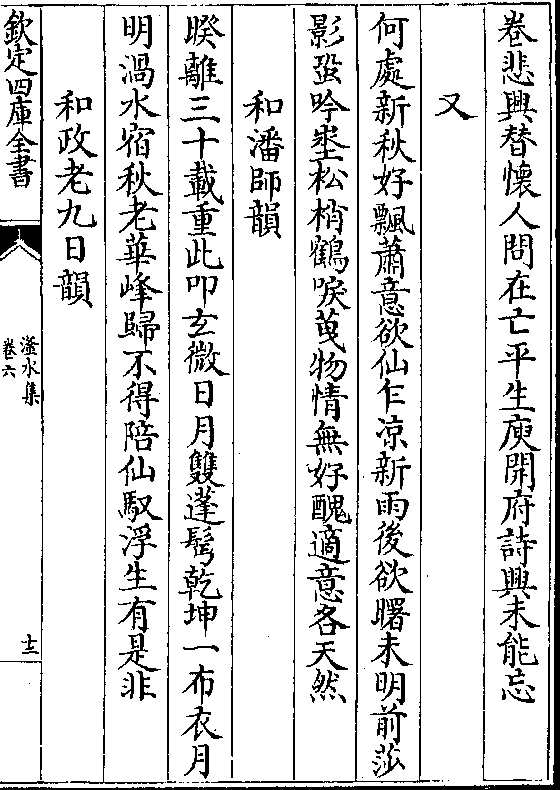 卷悲興替懷人問在亡平生庾開府詩興未能忘
又
何處新秋好飄蕭意欲仙乍凉新雨後欲曙未明前莎
影蛩吟坐松梢鶴唳茰物情無好醜適意各天然
和潘師韻
暌離三十載重此叩玄微日月雙蓬鬂乾坤一布衣月
明渦水宿秋老華峰歸不得陪仙馭浮生有是非
和政老九日韻
欽定四庫全書
滏水集
卷六
十三